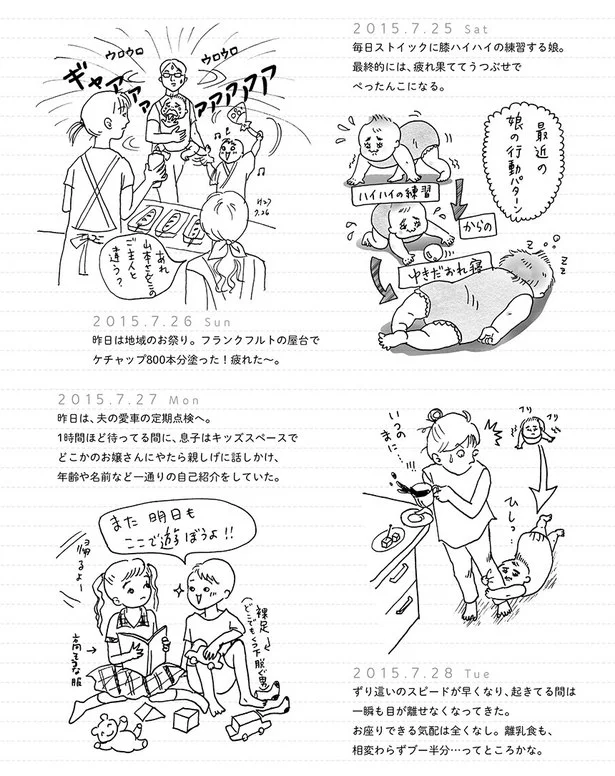 2015.7.25 Sat
毎日ストイックに膝ハイハイの練習する娘。
最終的には、疲れ果ててうつぶせで
ぺったんこになる。
最近の
娘の行動パターン
ハイハイの練習
からの
ゆきだおれ寝
zzz
ZZ
ウロウロ
ウロウロ
ギャアァァァ
アアアアアア
7.26
あれ
山本さんとこの
ご主人と
違う?
2015.7.26 Sun
昨日は地域のお祭り。フランクフルトの屋台で
ケチャップ800本分塗った!疲れた〜。
2015.7.27 Mon
昨日は、夫の愛車の定期点検へ。
1時間ほど待ってる間に、息子はキッズスペースで
どこかのお嬢さんにやたら親しげに話しかけ、
年齢や名前など一通りの自己紹介をしていた。
また 明日も
ここで遊ぼうよ!!
帰るよー
高そうな服
裸足
(どこでもくつ下脱ぐ男)
いつの
まに…!!!
フリ
フリ
ひしっ…
2015.7.28 Tue
ずり這いのスピードが早くなり、起きてる間は
一瞬も目が離せなくなってきた。
お座りできる気配は全くなし。離乳食も、
相変わらずブー半分…ってところかな。